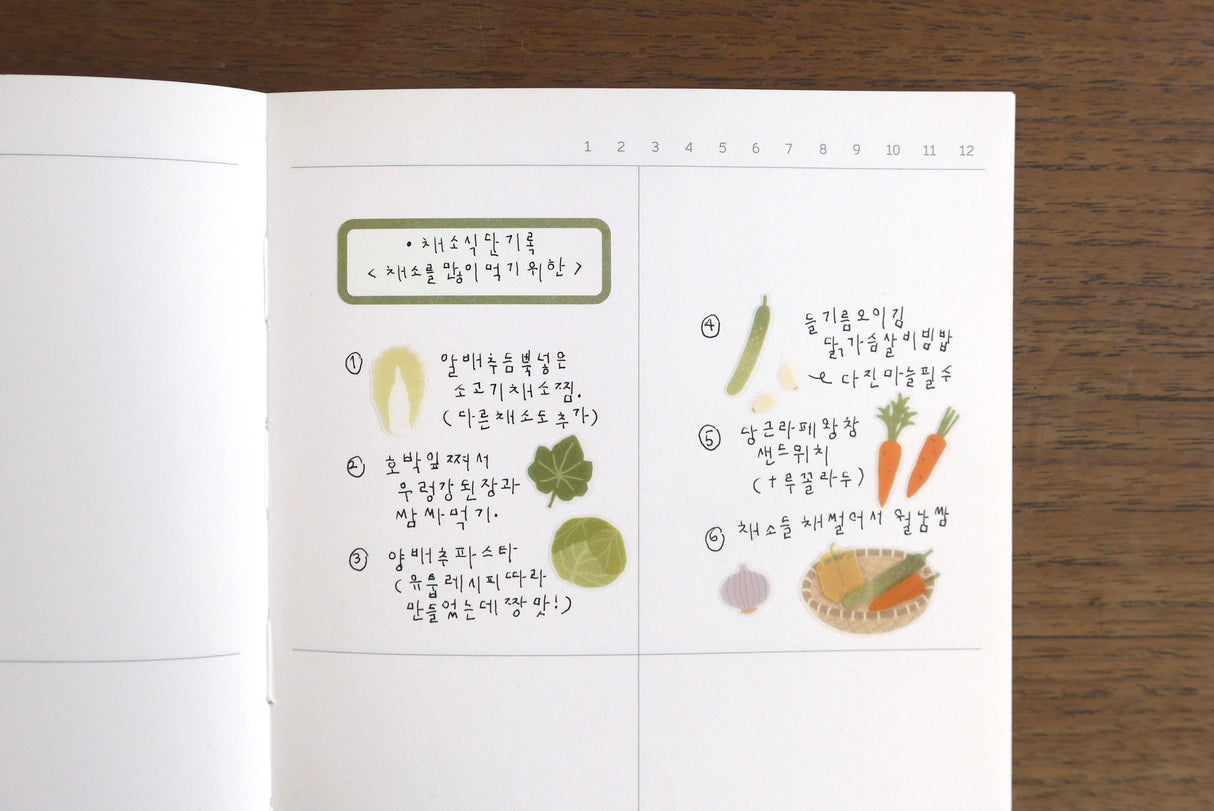 1 2 3 4 5 6 7 8 9 10 11 12
• 채소식단기록
< 채소를 많이먹기위한 >
① 알배추듬뿍넣은
소고기채소찜.
(다른채소도추가)
② 호박잎쪄서
우렁강된장과
쌈싸먹기.
③ 양배추파스타
(유튭레시피따라
만들었는데짱맛!)
④ 들기름오이김
닭가슴살비빔밥
다진마늘필수
⑤ 당근라페왕창
샌드위치
(+루꼴라두)
⑥ 채소들 채썰어서 월남쌈